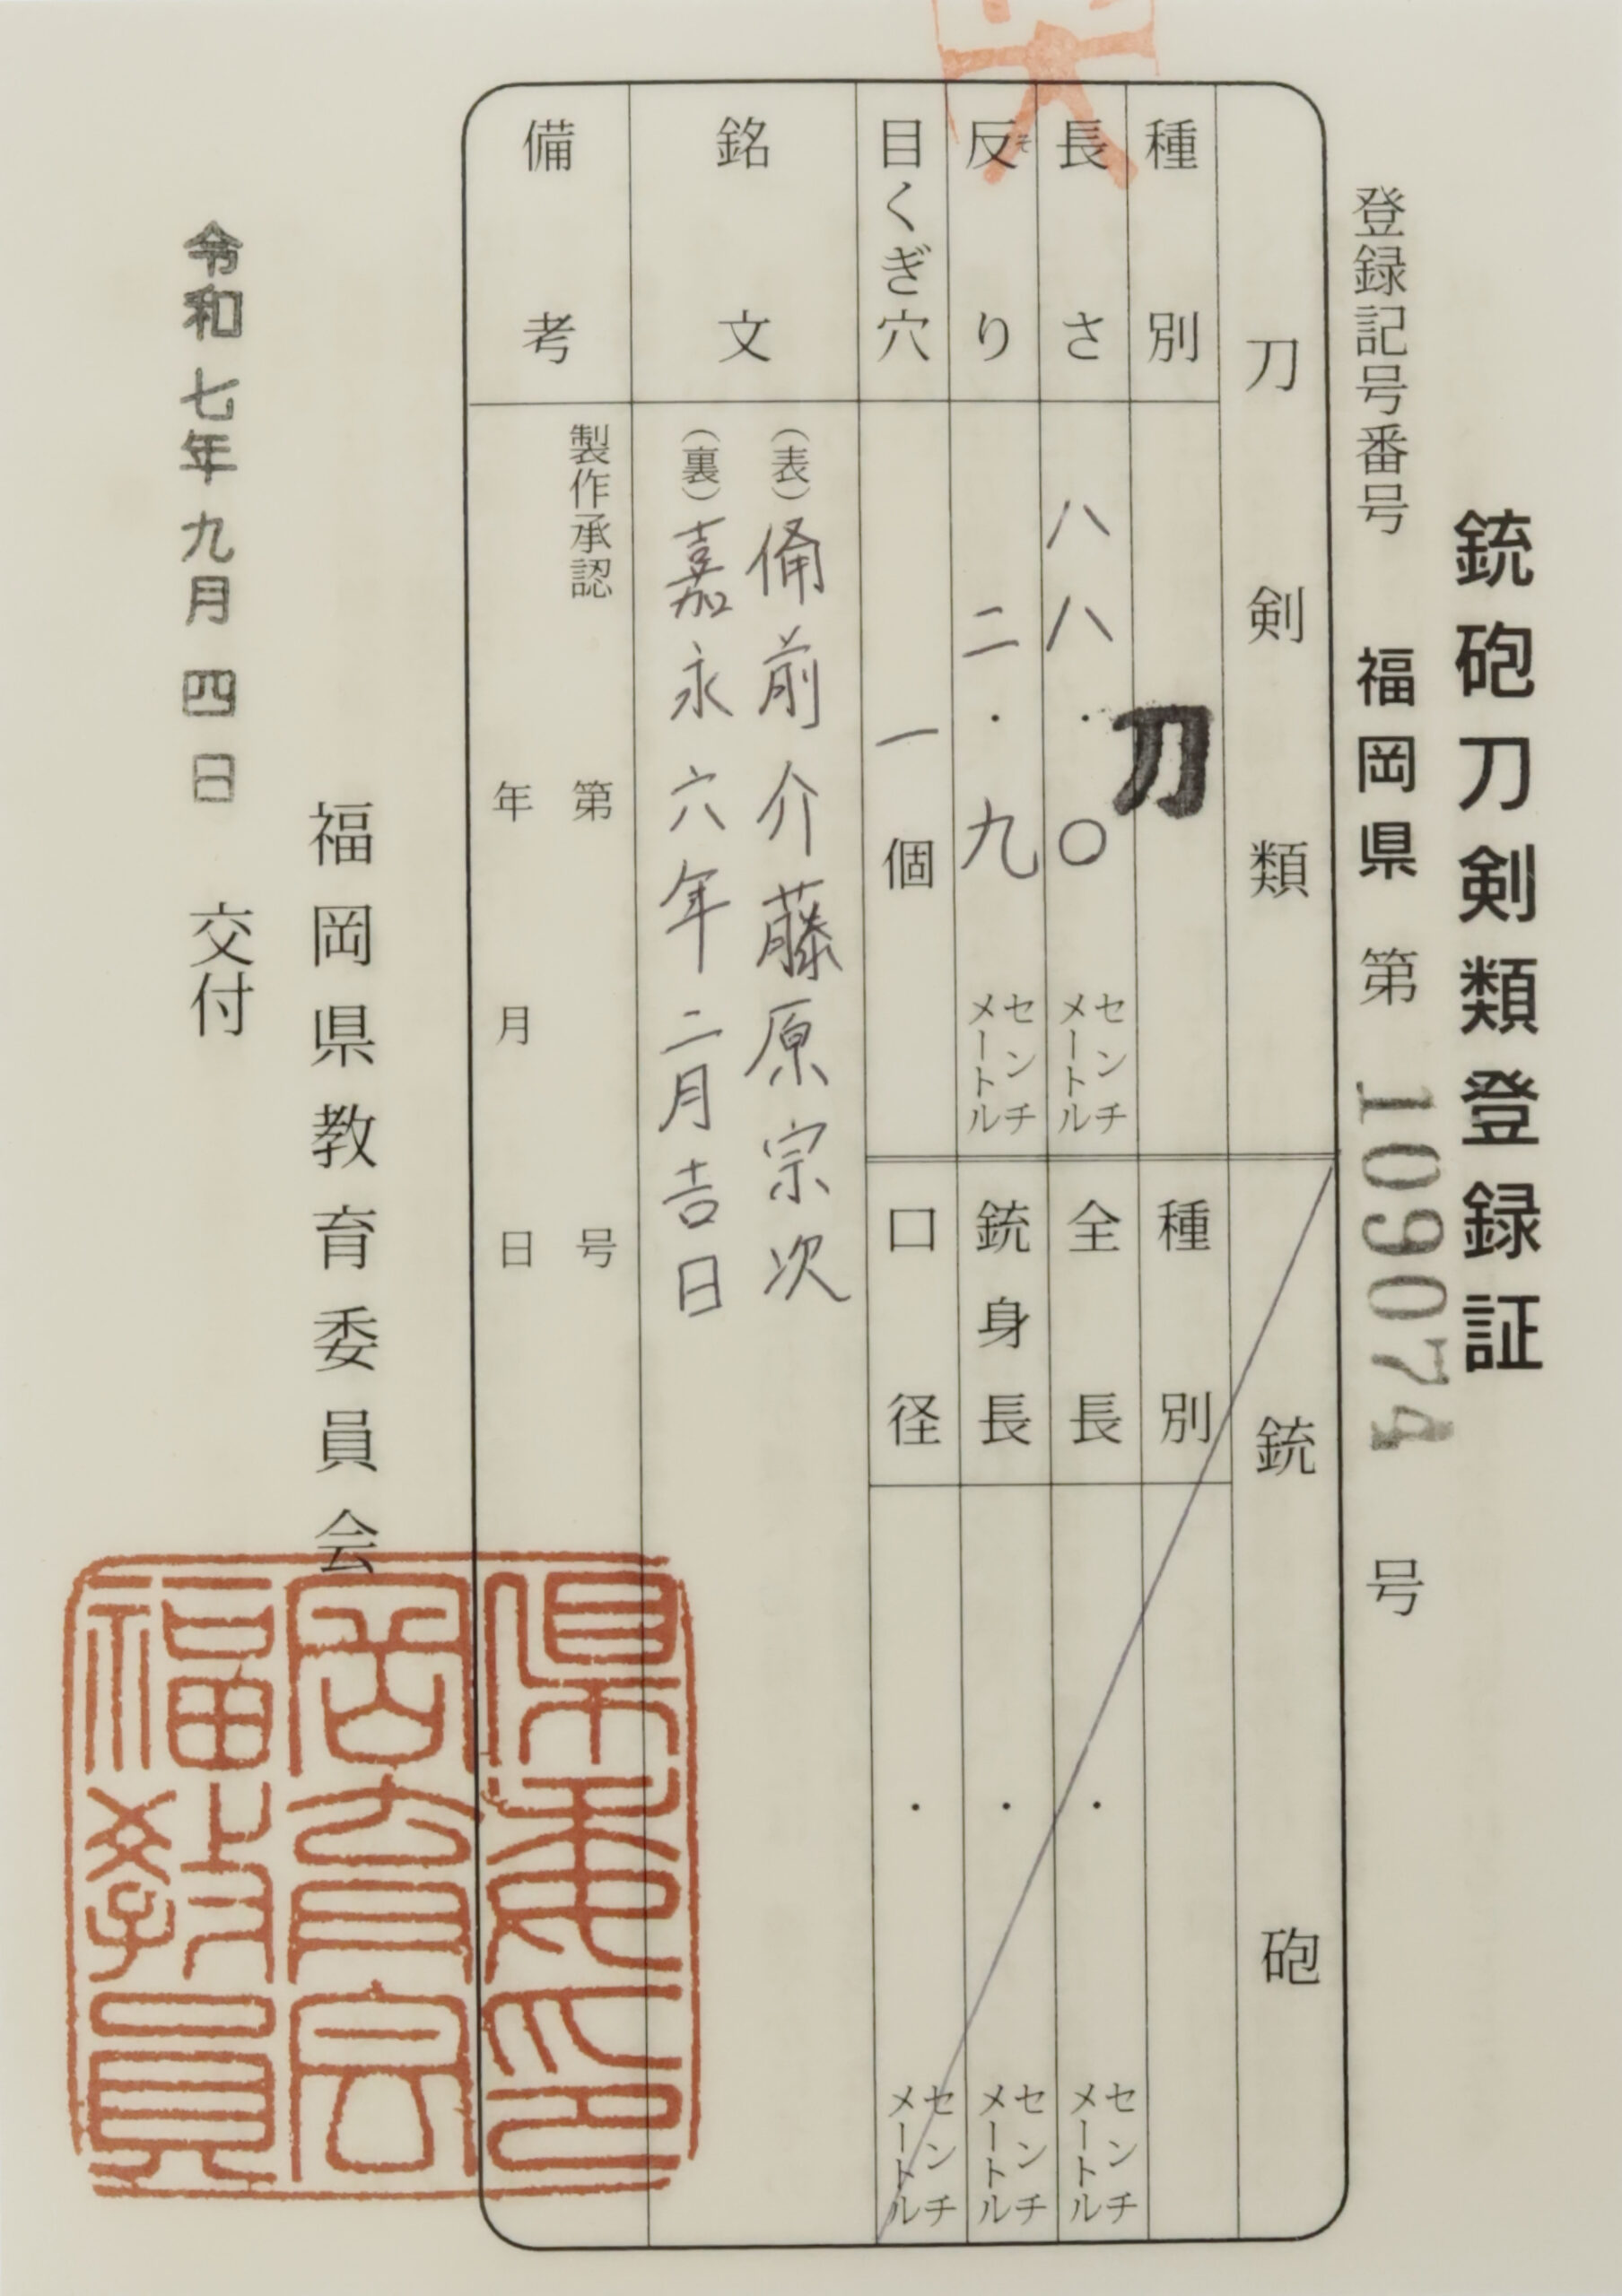 銃砲刀剣類登録証
登録記号番号 福岡県 第 109074 号
刀剣類
種別 刀
長さ 八八.〇 センチメートル
反り 二.九 センチメートル
そ
目くぎ穴 一個
銃砲
種別
全長 . センチメートル
銃身長 . センチメートル
口径 . センチメートル
銘文
(表) 備前介藤原宗次
(裏) 嘉永六年二月吉日
備考
製作承認 第 号
年 月 日
福岡県教育委員会
令和七年九月四日 交付
福教員
岡育会
県委印